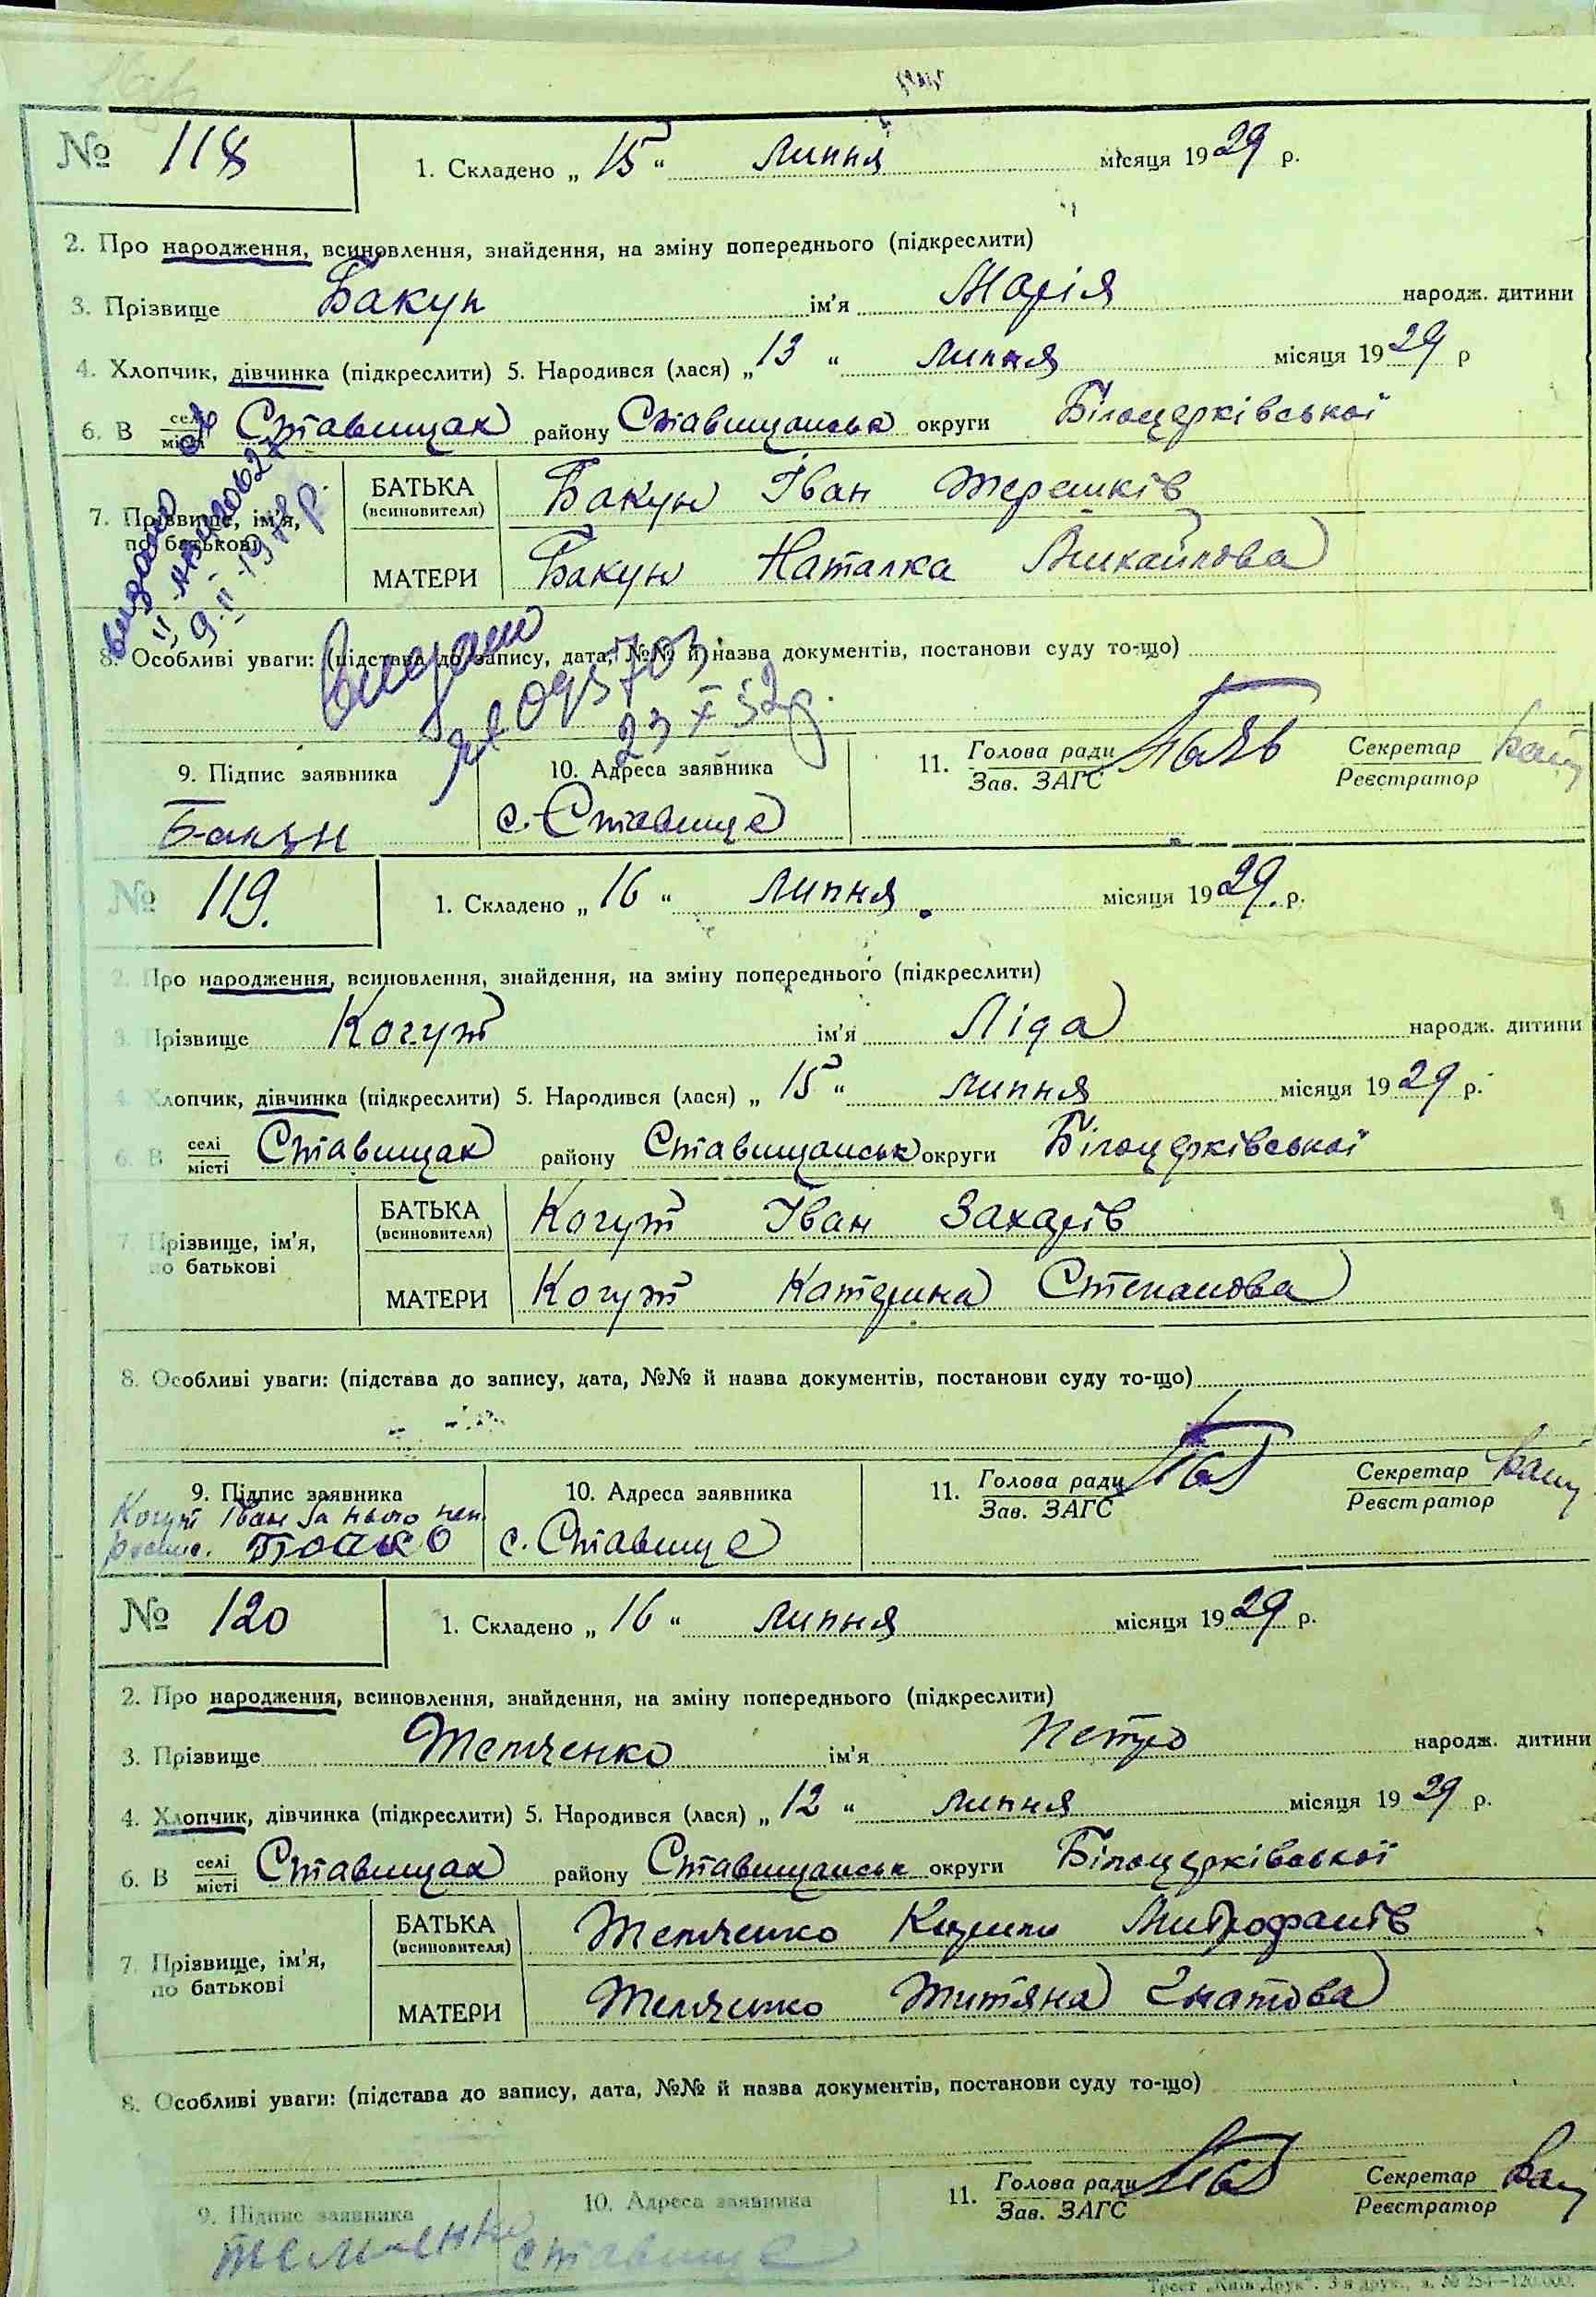 № 118
1. Складено „ 15 “ липня місяця 1929 р.
2. Про народження, всиновлення, знайдення, на зміну попереднього (підкреслити)
3. Прізвище Бакун ім'я Марія народж. дитини
4. Хлопчик, дівчинка (підкреслити) 5. Народився (лася) „ 13 “ липня місяця 1929 р
6. В селі місті Ставищах району Ставищанськ округи Білоцерківської
7. Прізвище, ім'я, по батькові
БАТЬКА (всиновителя) Бакун Іван Терешків
МАТЕРИ Бакун Наталка Михайлова
видано
9.II.1978 р.
8. Особливі уваги: (підстава до запису, дата, №№ й назва документів, постанови суду то-що)
Видано
№ 095703
23 X 52 р.
9. Підпис заявника
Бакун
10. Адреса заявника
с. Ставище
11. Голова ради Зав. ЗАГС
Секретар Реєстратор
№ 119.
1. Складено „ 16 “ липня місяця 1929. р.
2. Про народження, всиновлення, знайдення, на зміну попереднього (підкреслити)
3. Прізвище Когут ім'я Ліда народж. дитини
4. Хлопчик, дівчинка (підкреслити) 5. Народився (лася) „ 15 “ липня місяця 1929 р.
6. В селі місті Ставищах району Ставищанськ округи Білоцерківської
7. Прізвище, ім'я, по батькові
БАТЬКА (всиновителя) Когут Іван Захарів
МАТЕРИ Когут Катерина Степанова
8. Особливі уваги: (підстава до запису, дата, №№ й назва документів, постанови суду то-що)
9. Підпис заявника
Когут Іван за нього неп.
10. Адреса заявника
с. Ставище
11. Голова ради Зав. ЗАГС
Секретар Реєстратор
№ 120
1. Складено „ 16 “ липня місяця 1929 р.
2. Про народження, всиновлення, знайдення, на зміну попереднього (підкреслити)
3. Прізвище Темченко ім'я Петро народж. дитини
4. Хлопчик, дівчинка (підкреслити) 5. Народився (лася) „ 12 “ липня місяця 1929 р.
6. В селі місті Ставищах району Ставищанськ округи Білоцерківської
7. Прізвище, ім'я, по батькові
БАТЬКА (всиновителя) Темченко Кирило Митрофанів
МАТЕРИ Темченко Титяна Гнатова
8. Особливі уваги: (підстава до запису, дата, №№ й назва документів, постанови суду то-що)
9. Підпис заявника
Темченко
10. Адреса заявника
Ставище
11. Голова ради Зав. ЗАГС
Секретар Реєстратор
Трест „Київ Друк“. 3-я друк., з. № 254—120.000.